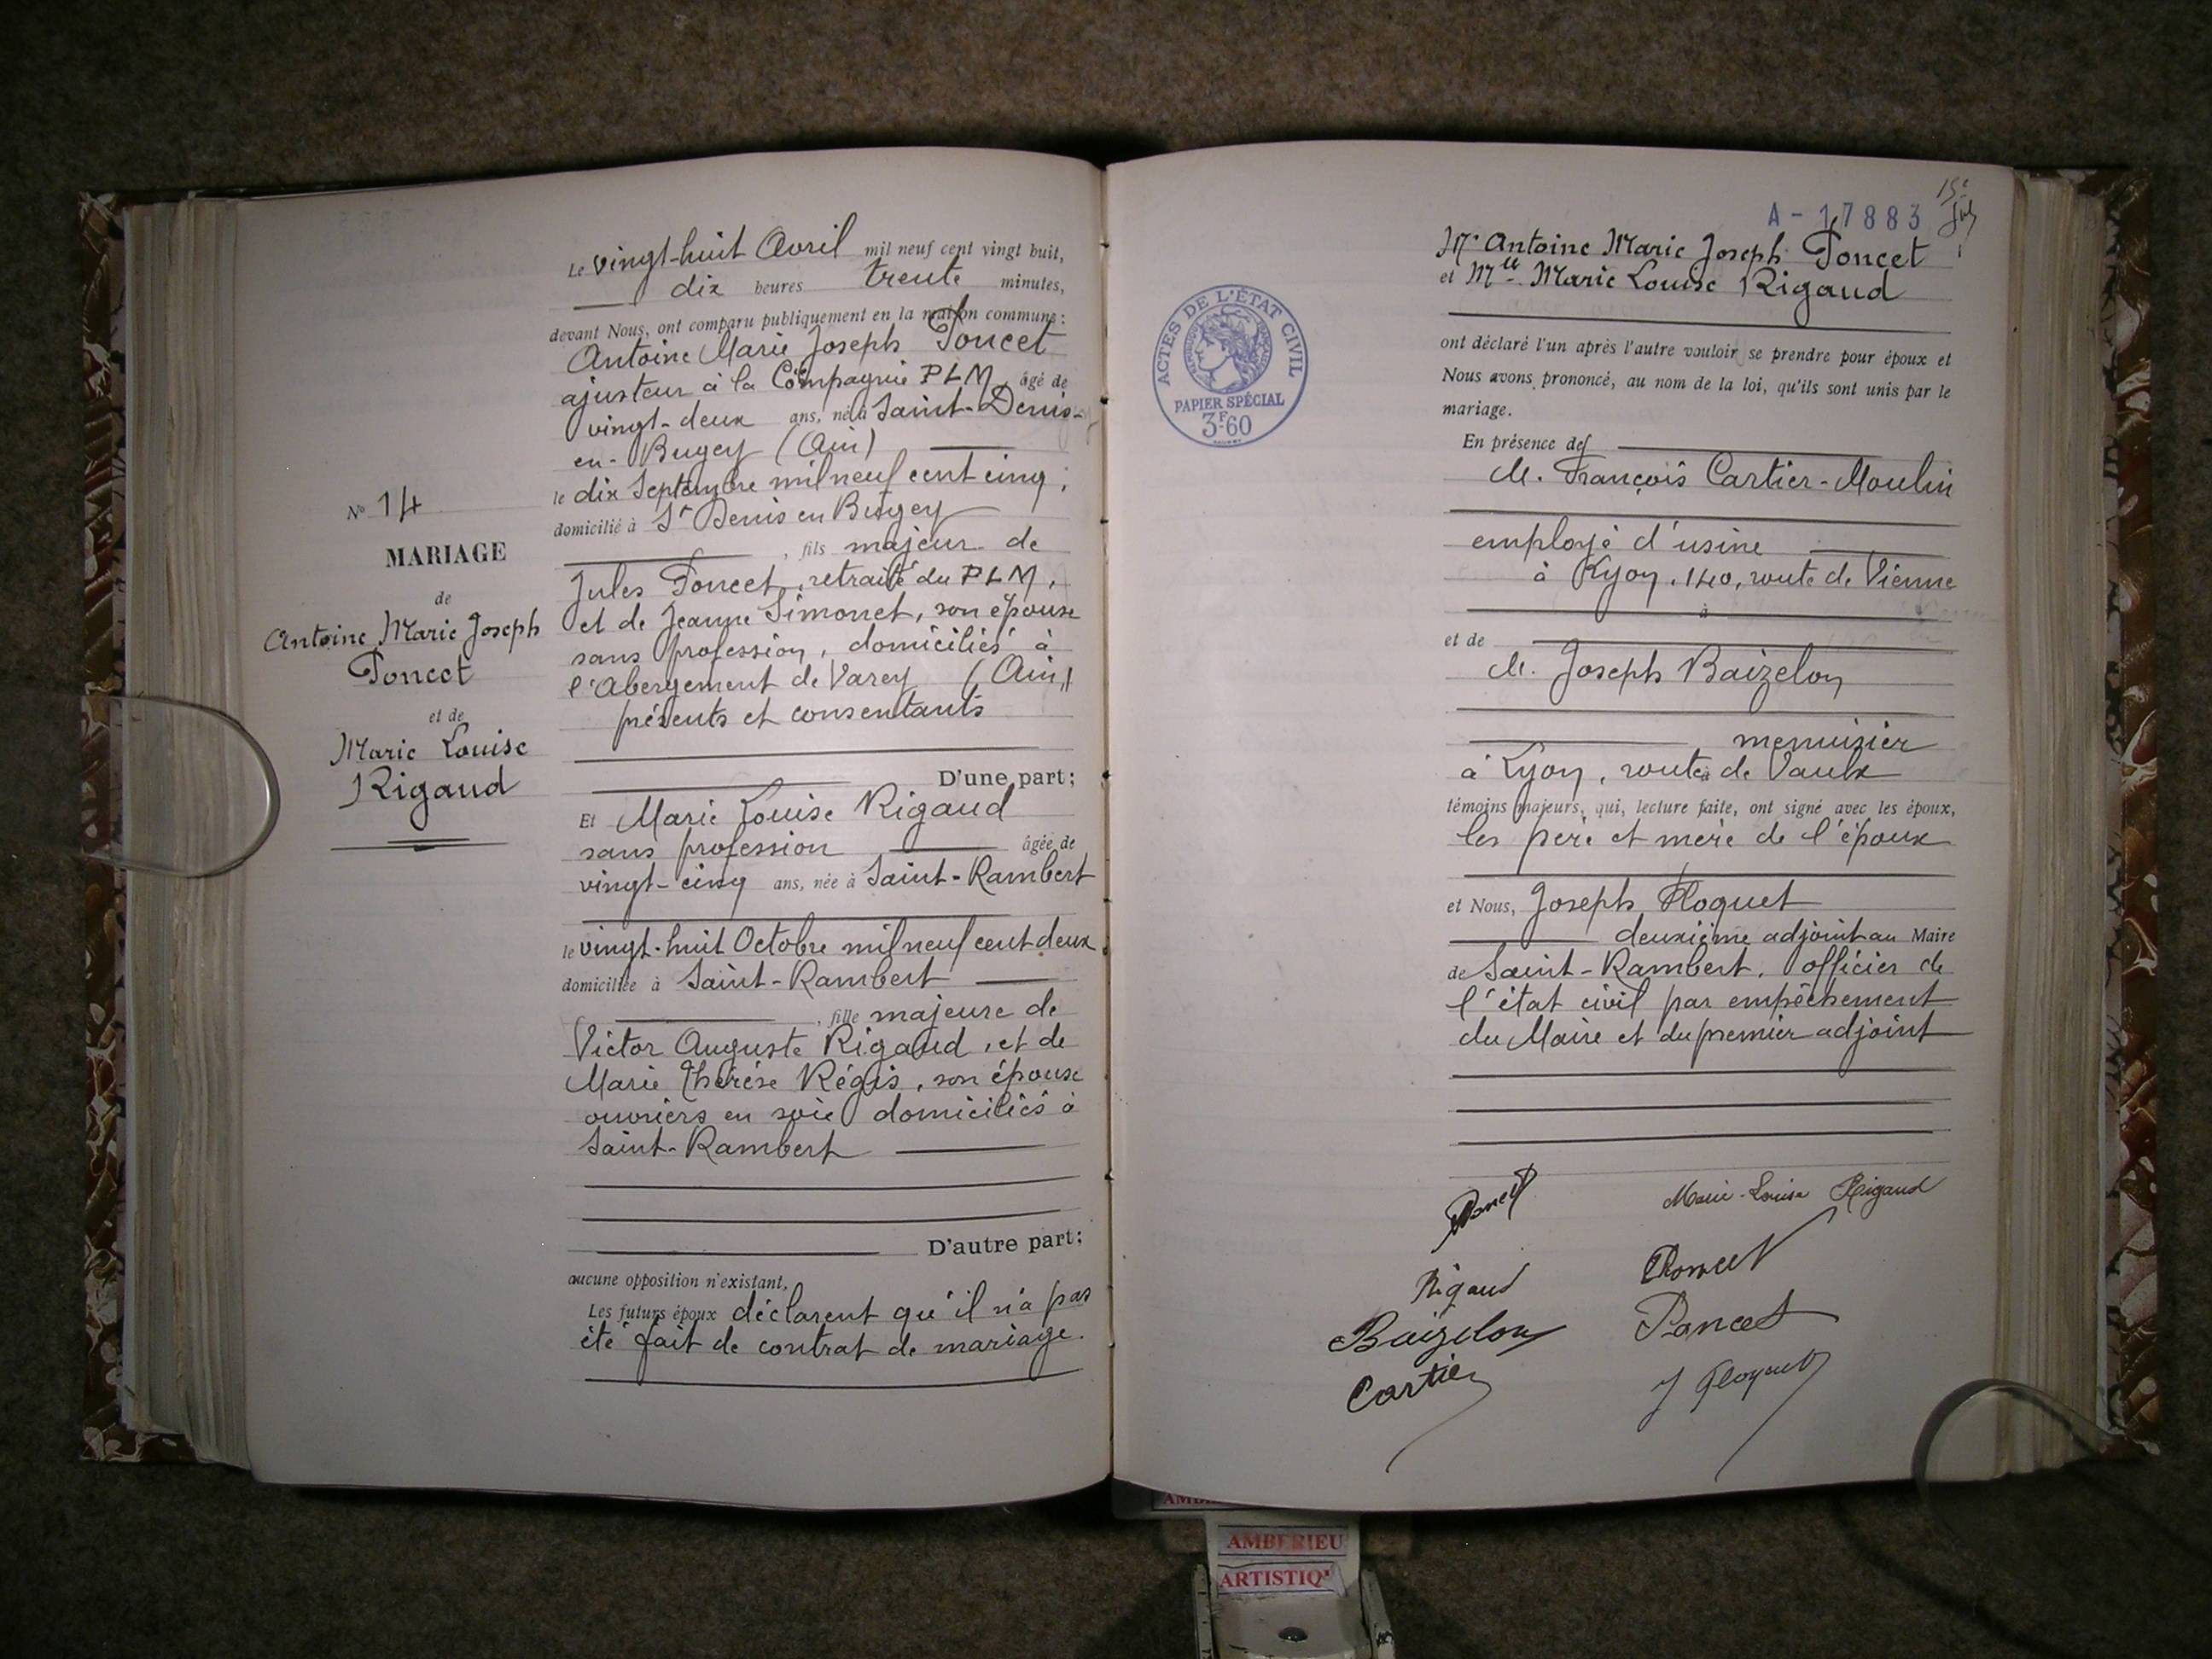 N° 14
MARIAGE
de
Antoine Marie Joseph
Poncet
et de
Marie Louise
Rigaud
Le vingt-huit Avril mil neuf cent vingt huit,
dix heures trente minutes,
devant Nous, ont comparu publiquement en la maison commune :
Antoine Marie Joseph Poncet
ajusteur à la Compagnie PLM, âgé de
vingt-deux ans, né à Saint-Denis-
en-Bugey (Ain)
le dix Septembre mil neuf cent cinq ;
domicilié à St Denis en Bugey
, fils majeur de
Jules Poncet, retraité du PLM,
et de Jeanne Simonet, son épouse
sans profession, domiciliés à
l'Abergement de Varey (Ain)
présents et consentants
D'une part ;
Et Marie Louise Rigaud
sans profession âgée de
vingt-cinq ans, née à Saint-Rambert
le vingt-huit Octobre mil neuf cent deux
domiciliée à Saint-Rambert
, fille majeure de
Victor Auguste Rigaud, et de
Marie Thérèse Régis, son épouse
ouvriers en soie domiciliés à
Saint-Rambert
D'autre part ;
aucune opposition n'existant,
Les futurs époux déclarent qu'il n'a pas
été fait de contrat de mariage.
ACTES DE L'ÉTAT CIVIL
PAPIER SPÉCIAL
3F60
A - 17883
Mr Antoine Marie Joseph Poncet
et Mlle Marie Louise Rigaud
ont déclaré l'un après l'autre vouloir se prendre pour époux et
Nous avons prononcé, au nom de la loi, qu'ils sont unis par le
mariage.
En présence de
M. François Cartier-Moulin
employé d'usine
à Lyon, 140, route de Vienne
à
et de
M. Joseph Baizelon
menuisier
à Lyon, route de Vaulx
témoins majeurs, qui, lecture faite, ont signé avec les époux,
les père et mère de l'époux
et Nous, Joseph Floquet
deuxième adjoint au Maire
de Saint-Rambert, officier de
l'état civil par empêchement
du Maire et du premier adjoint
Poncet
Marie-Louise Rigaud
Rigaud
Poncet
Baizelon
Poncet
Cartier
J Floquet
AMBERIEU
ARTISTIQ